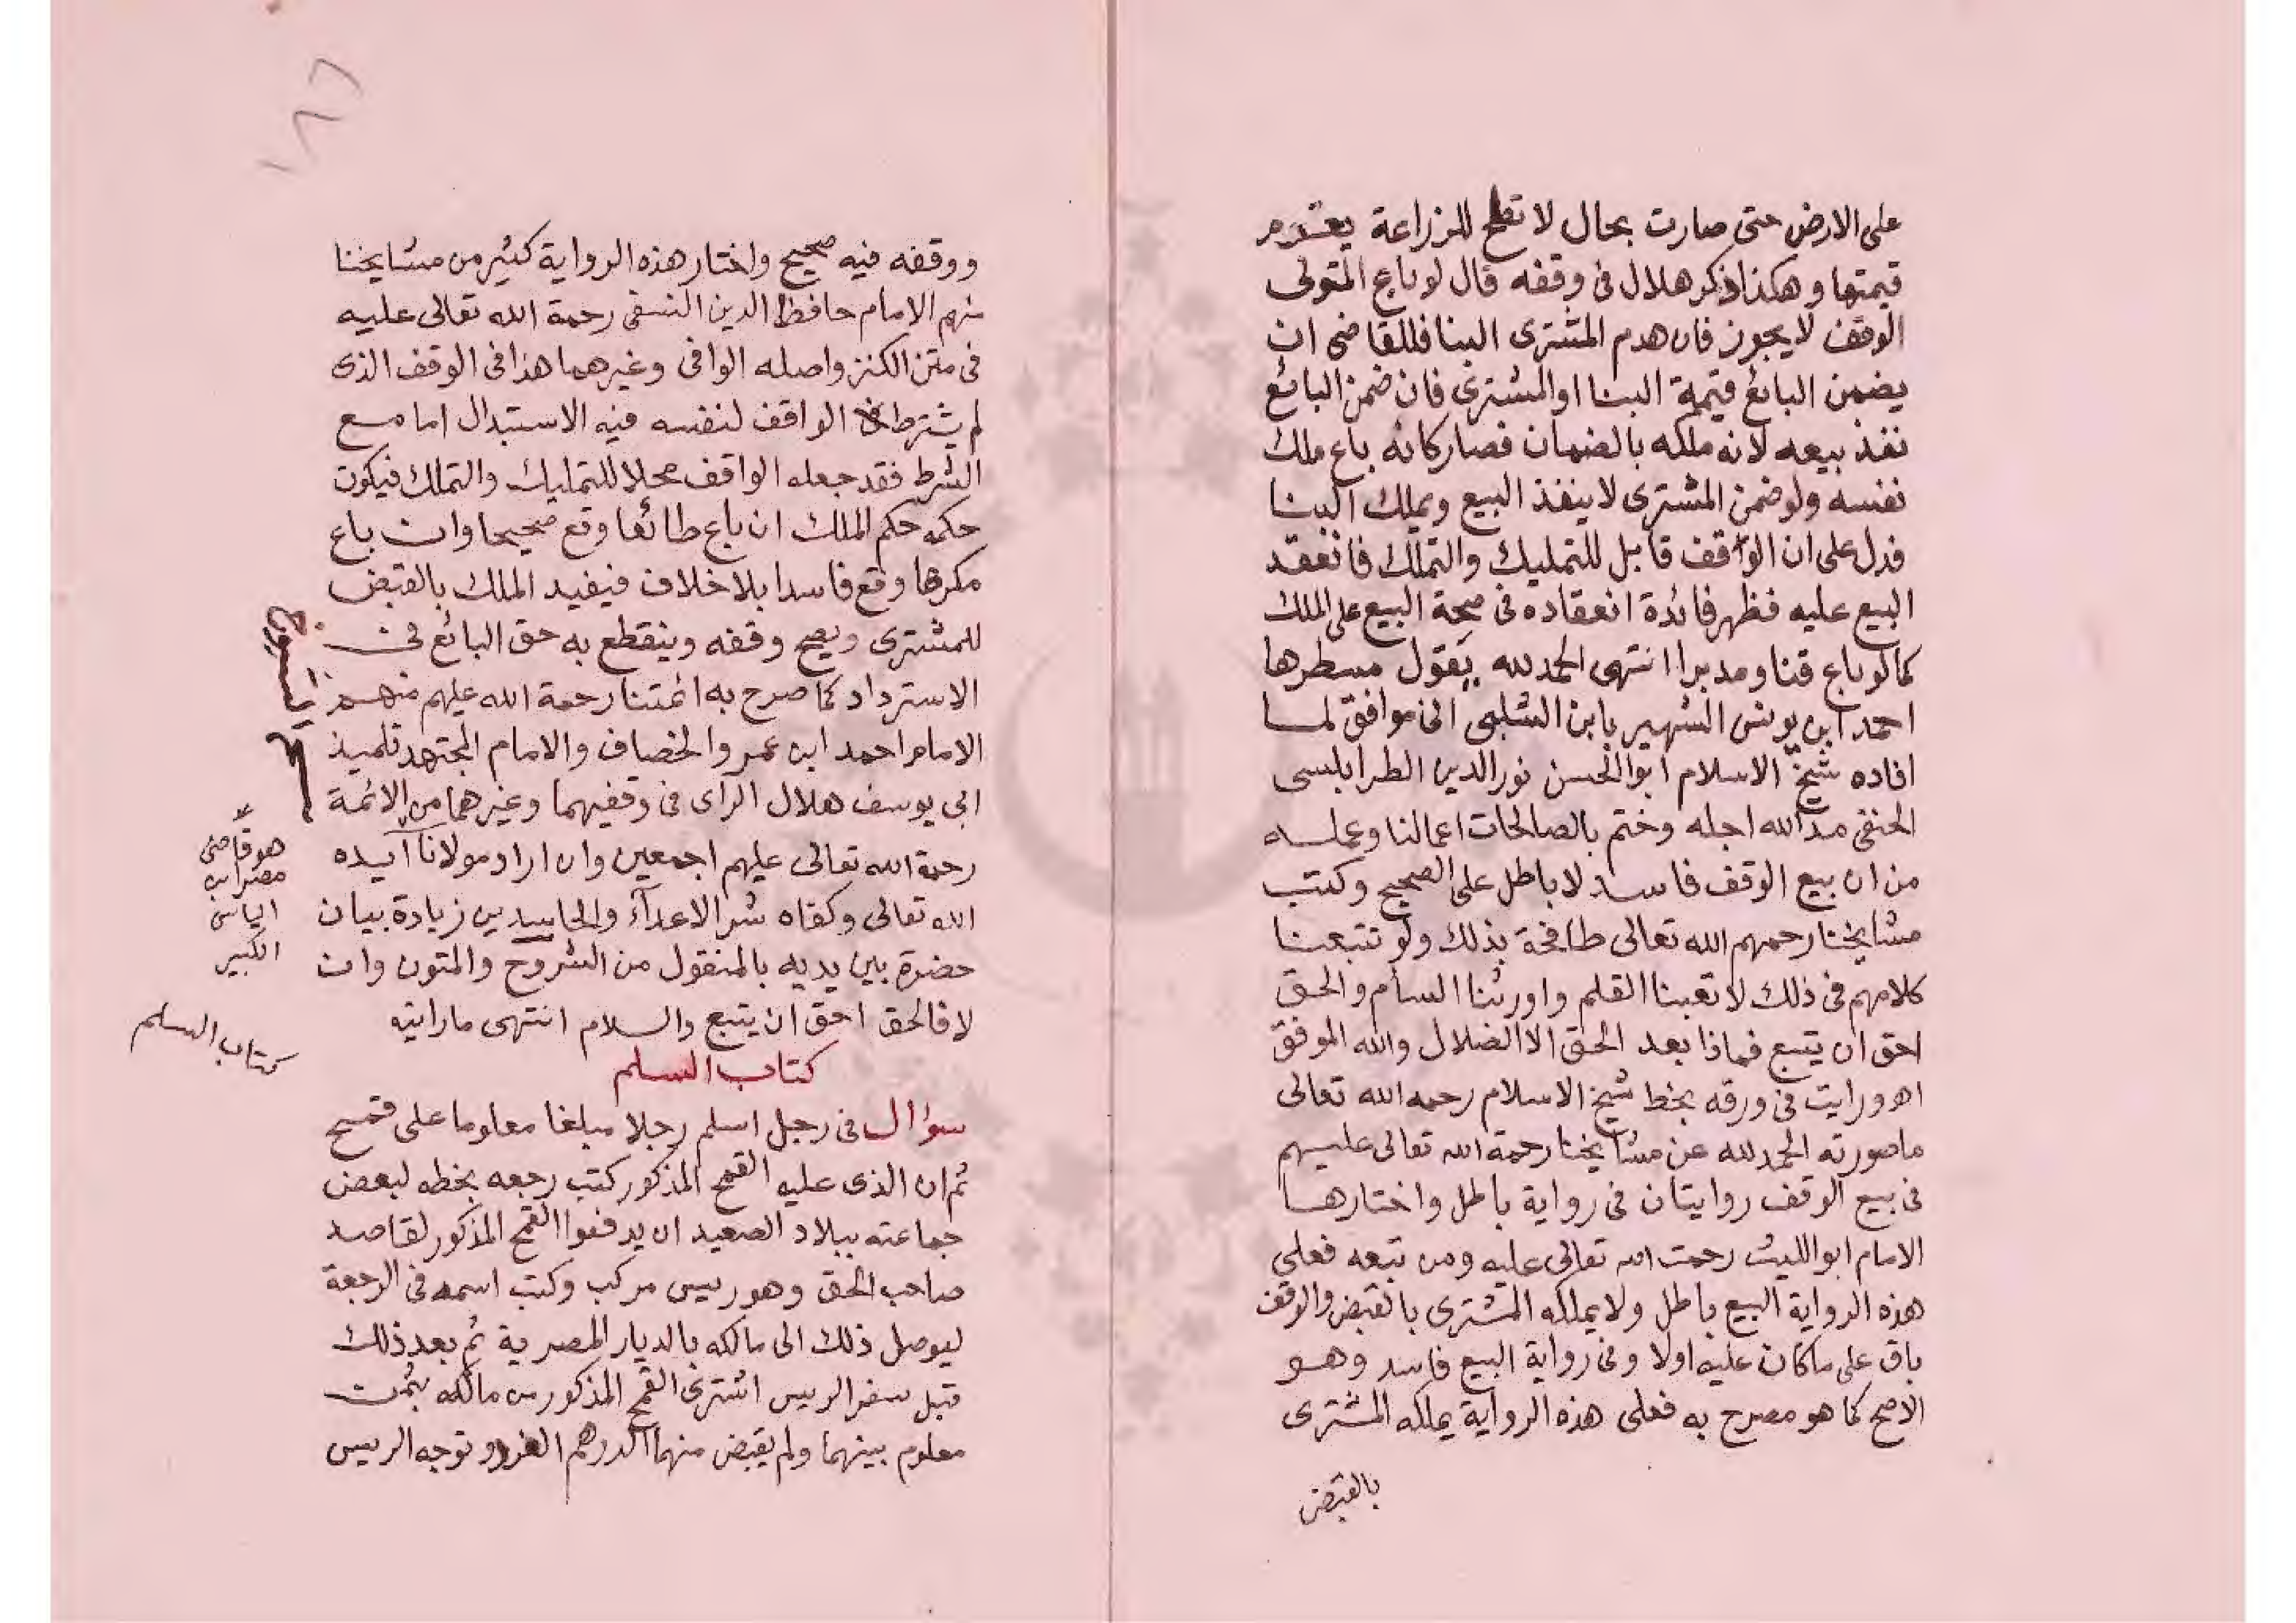 على الارض حتى صارت بحال لا تصلح للزراعة يغرم
قيمتها وهكذا ذكر هلال فى وقفه قال لو باع المتولى
الوقف لا يجوز فان هدم المشترى البنا فللقاضى ان
يضمن البائع قيمة البنا او المشترى فان ضمن البائع
نفذ بيعه لانه ملكه بالضمان فصار كانه باع ملك
نفسه ولو ضمن المشترى لا ينفذ البيع ويملك البنا
فدل على ان الوقف قابل للتمليك والتملك فانعقد
البيع عليه فظهر فائدة انعقاده فى صحة البيع على الملك
كما لو باع قنا ومدبرا انتهى الحمد لله يقول مسطرها
احمد ابن يونس الشهير بابن الشلبى انى موافق لما
افاده شيخ الاسلام ابو الحسن نور الدين الطرابلسى
الحنفى مد الله اجله وختم بالصالحات اعمالنا وعمله
من ان بيع الوقف فاسد لا باطل على الصحيح وكتب
مشايخنا رحمهم الله تعالى طافحة بذلك ولو تتبعنا
كلامهم فى ذلك لاتعبنا القلم واورثنا السأم والحق
احق ان يتبع فماذا بعد الحق الا الضلال والله الموفق
اه ورايت فى ورقه بخط شيخ الاسلام رحمه الله تعالى
ما صورته الحمد لله عن مشايخنا رحمة الله تعالى عليهم
فى بيع الوقف روايتان فى رواية باطل واختارها
الامام ابو الليث رحمت الله تعالى عليه ومن تبعه فعلى
هذه الرواية البيع باطل ولا يملكه المشترى بالقبض والوقف
باق على ماكان عليه اولا وفى رواية البيع فاسد وهو
الاصح كما هو مصرح به فعلى هذه الرواية يملكه المشترى
بالقبض
١٨٦
ووقفه فيه صحيح واختار هذه الرواية كثير من مشايخنا
منهم الامام حافظ الدين النسفى رحمة الله تعالى عليه
فى متن الكنز واصله الوافى وغيرهما هذا فى الوقف الذى
لم يشترط الواقف لنفسه فيه الاستبدال اما مع
الشرط فقد جعله الواقف محلا للتمليك والتملك فيكون
حكمه حكم الملك ان باع طائعا وقع صحيحا وان باع
مكرها وقع فاسدا بلا خلاف فيفيد الملك بالقبض
للمشترى ويصح وقفه وينقطع به حق البائع فى
الاسترداد كما صرح به ائمتنا رحمة الله عليهم منهم
الامام احمد ابن عمر والخصاف والامام المجتهد تلميذ
ابى يوسف هلال الراى فى وقفيهما وغيرهما من الائمة
رحمة الله تعالى عليهم اجمعين وان اراد مولانا آيده
الله تعالى وكفاه شر الاعدآء والحاسدين زيادة بيان
حضرة بين يديه بالمنقول من الشروح والمتون وان
لا فالحق احق ان يتبع والسلام انتهى ما رايته
هو قاضى
مصر ابن
الياس
الكبير
كتاب السلم
كتاب السلم
سؤال فى رجل اسلم رجلا مبلغا معلوما على قمح
ثم ان الذى عليه القمح المذكور كتب رجعه بخطه لبعض
جماعته ببلاد الصعيد ان يدفعوا القمح المذكور لقاصد
صاحب الحق وهو ريس مركب وكتب اسمه فى الرجعة
ليوصل ذلك الى مالكه بالديار المصرية ثم بعد ذلك
قبل سفر الريس اشترى القمح المذكور من مالكه بثمن
معلوم بينهما ولم يقبض منهما الدرهم الفرد وتوجه الريس